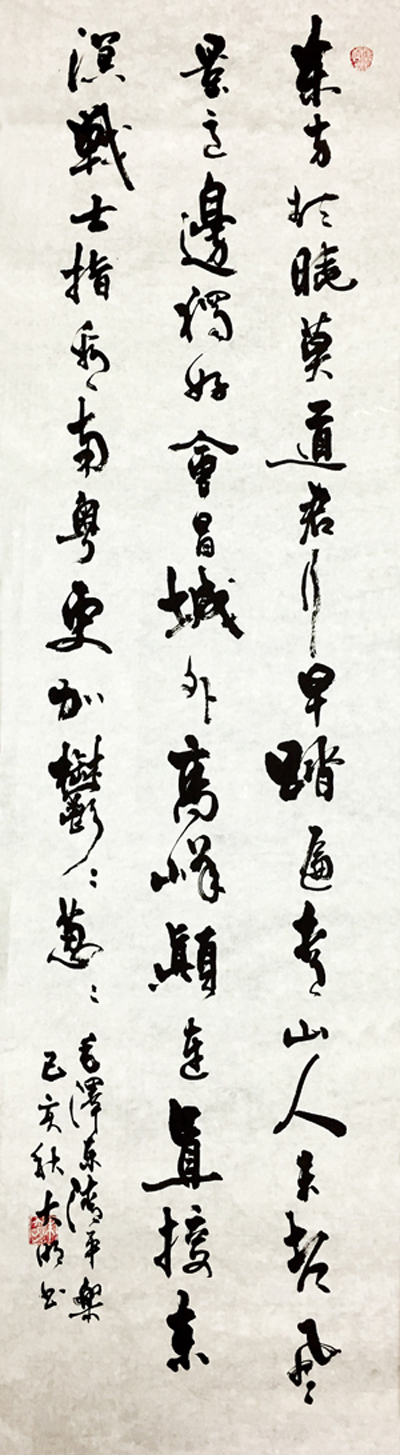 東方欲曉莫道君行早踏遍青山人未老風
景這邊獨好會昌城外高峰顛連直接東
溟戰士指看南粵更加鬱々葱々
毛澤東清平樂
己亥秋大明书